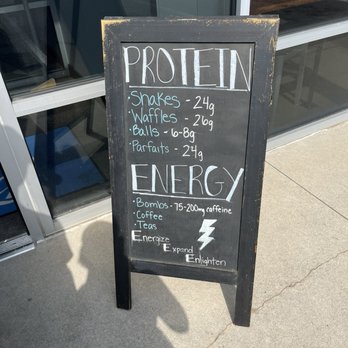 PROTEIN
• Shakes - 24g
• Waffles - 26g
• Balls - 6-8g
• Parfaits - 24g
ENERGY
• Bombs - 75-200mg caffeine
• Coffee
• Teas
Energize
Expand
Enlighten